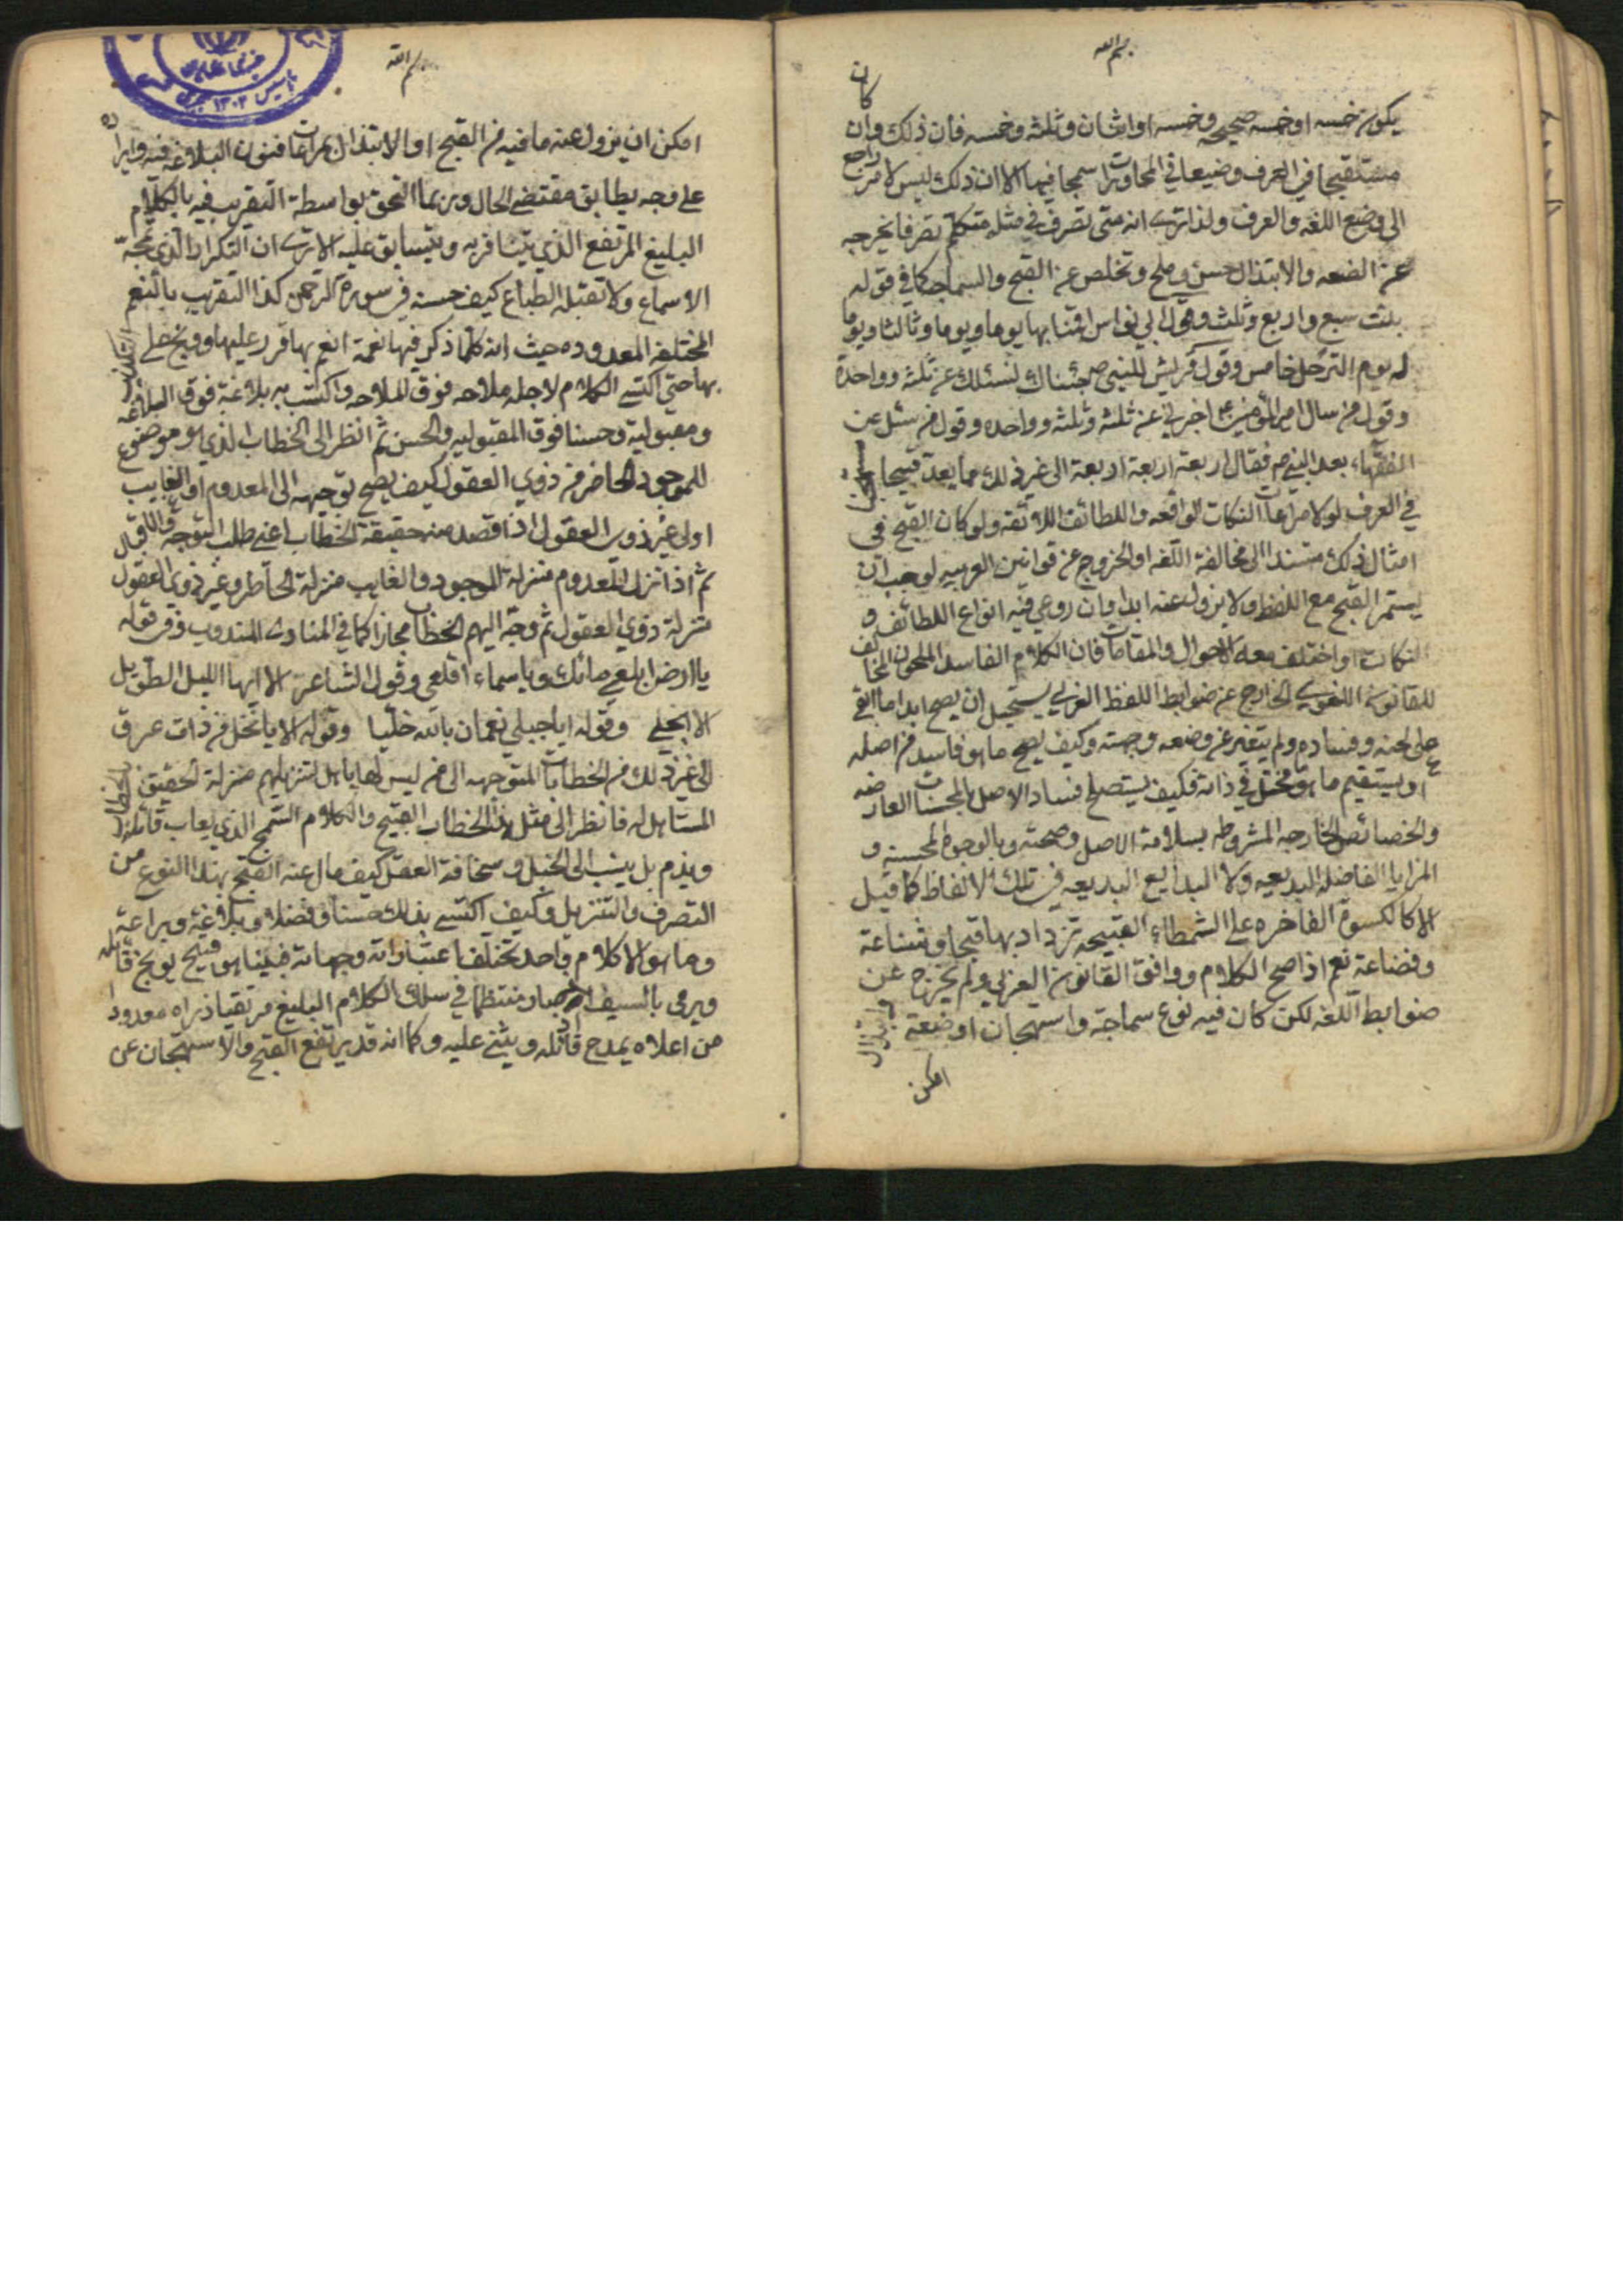 بسم الله
يكون خمسه او خمسه صحيحه وخمسه او اثنان وثلثه وخمسه فان ذلك وان كان
مستقبحا في العرف وضيعا في المحاورات سمجا فيها الا ان ذلك ليس لامر راجع
الى وضع اللغه والعرف ولذا ترى انه متى تصرف في مثله متكلم تصرفا يخرجه
عن الضعه والابتذال حسن وملح وتخلص عن القبح والسماجه كما في قوله
بنت سبع واربع وثلث وقول ابي نواس اقمنا بها يوما ويوما وثالثا ويوما
له يوم الترحل خامس وقول قريش للنبي ص جئناك لنسئلك عن ثلثه وواحدة
وقول من سال امير المؤمنين ع اخبرني عن ثلثه وثلثه وواحده وقول من سئل عن
الفقهاء بعد النبي ص فقال اربعة اربعة اربعة الى غير ذلك مما يعد قبيحا
في العرف لولا مراعات النكات الواقعه واللطائف اللائقه ولو كان القبح في
امثال ذلك مستندا الى مخالفة اللغه او الخروج عن قوانين العربيه لوجب ان
يستمر القبح مع اللفظ ولا يزول عنه ابدا وان روعي فيه انواع اللطائف و
النكات او اختلف معه الاحوال والمقامات فان الكلام الفاسد الملحون المخالف
للقانون اللغوي الخارج عن ضوابط اللفظ العربي يستحيل ان يصح ابدا ما بقي
على لحنه وفساده ولم يتغير عن وضعه وجهته وكيف يصح ما هو فاسد من اصله
او يستقيم ما هو مختل في ذاته فكيف يستصلح فساد الاصل بالمحسنات العارضه
والخصائص الخارجه المشروطه بسلامة الاصل وصحته وبالوجوه المحسنه و
المزايا الفاضله البديعيه ولا البدايع البديعيه في تلك الالفاظ كما قيل
الا كالكسوة الفاخره على الشمطاء القبيحه تزداد بها قبحا وشناعة
وفضاعة نعم اذا صح الكلام ووافق القانون العربي ولم يخرج عن
ضوابط اللغه لكن كان فيه نوع سماجة واستهجان او ضعة وابتذال
امكن
بسم الله
امكن ان يزول عنه ما فيه من القبح او الابتذال بمراعات فنون البلاغه فيه وايراده
على وجه يطابق مقتضى الحال وربما التحق بواسطة التقريب فيه بالكلام
البليغ المرتفع الذي يتنافر به ويتسابق عليه الا ترى ان التكرار الذي تمجه
الاسماع ولا تقبله الطباع كيف حسنه في سورة الرحمن كذا التقريب بالنعم
المختلفه المعدوده حيث انه كلما ذكر فيها نعمة انعم بها قرر عليها ووبخ على التكذيب
بها حتى اكتسى الكلام لاجله ملاحه فوق الملاحه واكتسب به بلاغة فوق البلاغه
ومقبولية وحسنا فوق المقبوليه والحسن ثم انظر الى الخطاب الذي هو موضوع
للموجود الحاضر من ذوي العقول كيف يصح توجيهه الى المعدوم او الغايب
او لى غير ذوي العقول اذا قصد منه حقيقة الخطاب اعني طلب التوجه والاقبال
ثم اذا نزل المعدوم منزلة الموجود والغايب منزلة الحاضر وغير ذوي العقول
منزلة ذوي العقول ثم وجه اليهم الخطاب مجازا كما في المنادى المندوب وفي قوله
يا ارض ابلعي مائك ويا سماء اقلعي وقول الشاعر الا ايها الليل الطويل
الا انجلي وقوله ايا جبلي نعمان بالله خليا وقوله الا يا نخل من ذات عرق
الى غير ذلك من الخطابات المتوجهه الى من ليس لها باهل لتنزيلهم منزلة الحقيق بالخطاب
المستاهل له فانظر الى مثل هذا الخطاب القبيح والكلام السمج الذي يعاب قائله
ويذم بل ينسب الى الخبل وسخافة العقل كيف مال عنه القبح بهذا النوع من
التصرف والتنزيل وكيف اكتسى بذلك حسنا وفضلا وبلاغة وبراعة
وما هو الا كلام واحد تختلف اعتباراته وجهاته فبينا هو قبيح يوبخ قائله
ويرمى بالسيف اذ صار منتظما في سلك الكلام البليغ مرتقيا ذراه معدودا
من اعلاه يمدح قائله ويثنى عليه وكما انه قد يرتفع القبح والاستهجان عن